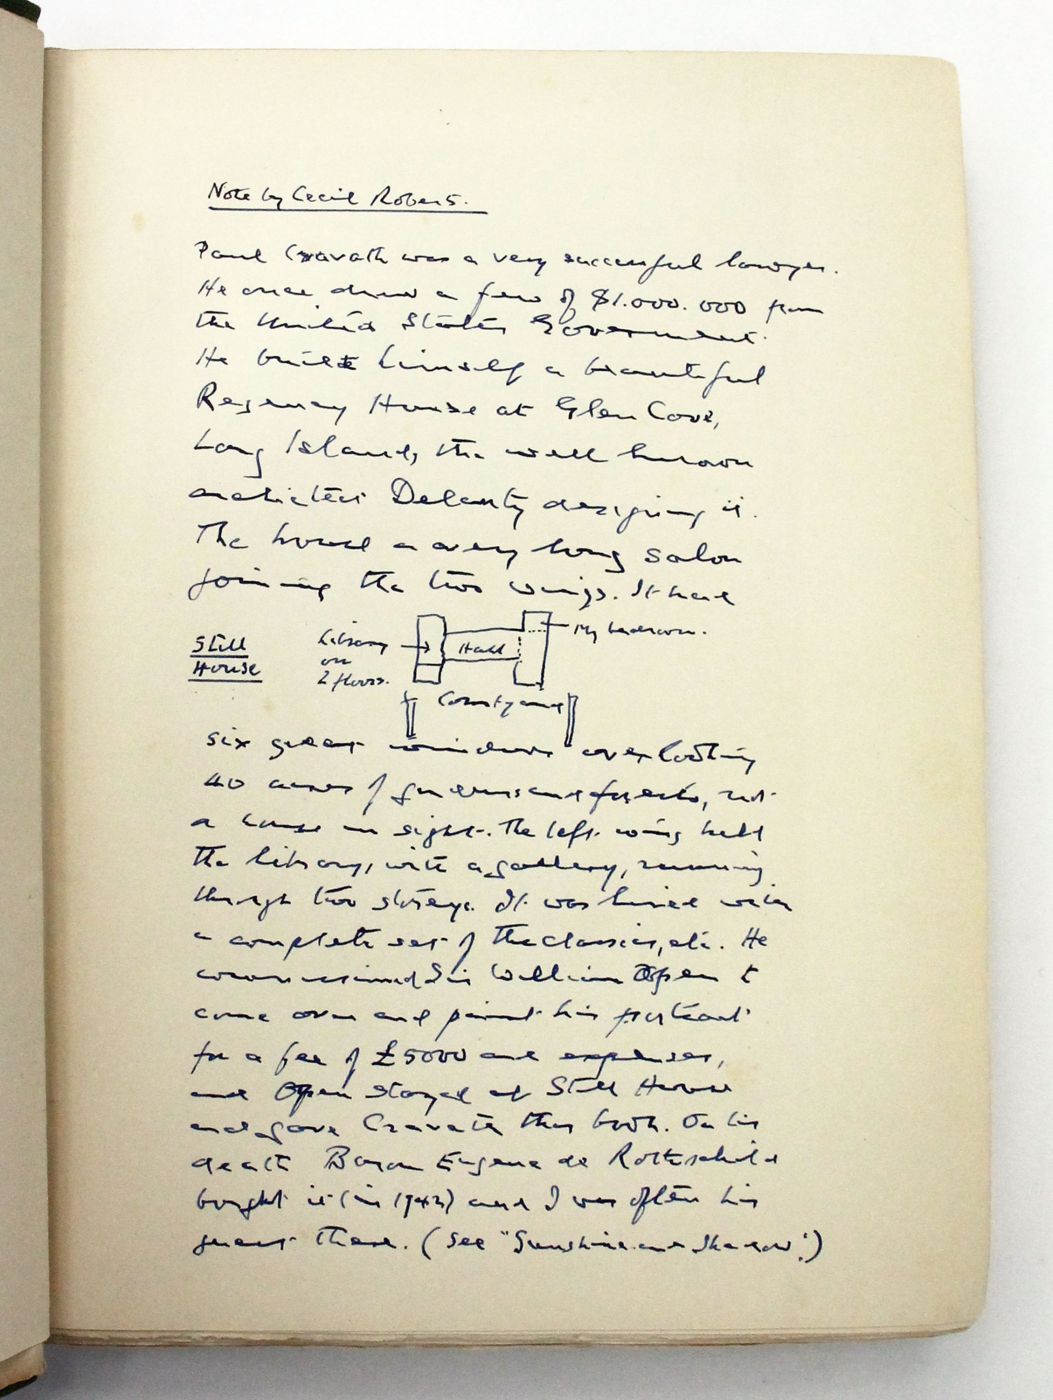 Note by Cecil Roberts.
Paul Cravath was a very successful lawyer.
He once drew a fee of $1.000.000 from
the United States Government.
He built himself a beautiful
Regency House at Glen Cove,
Long Island, the well known
architect Delanty designing it.
The house a very long salon
joining the two wings. It had
Still
House
Library
on
2 floors.
Hall
My bedroom.
Courtyard
six great windows overlooking
40 acres of and forests, not
a house in sight. The left wing held
the library, with a gallery, running
through two storeys. It was lined with
a complete set of the classics, etc. He
commissioned Sir William Open to
come over and paint his portrait
for a fee of £5000 and expenses,
and Open stayed at Still House
and gave Cravath this book. On his
death Baron Eugene de Rothschild
bought it (in 1942) and I was often his
guest there. (See "Sunshine and Shadow".)